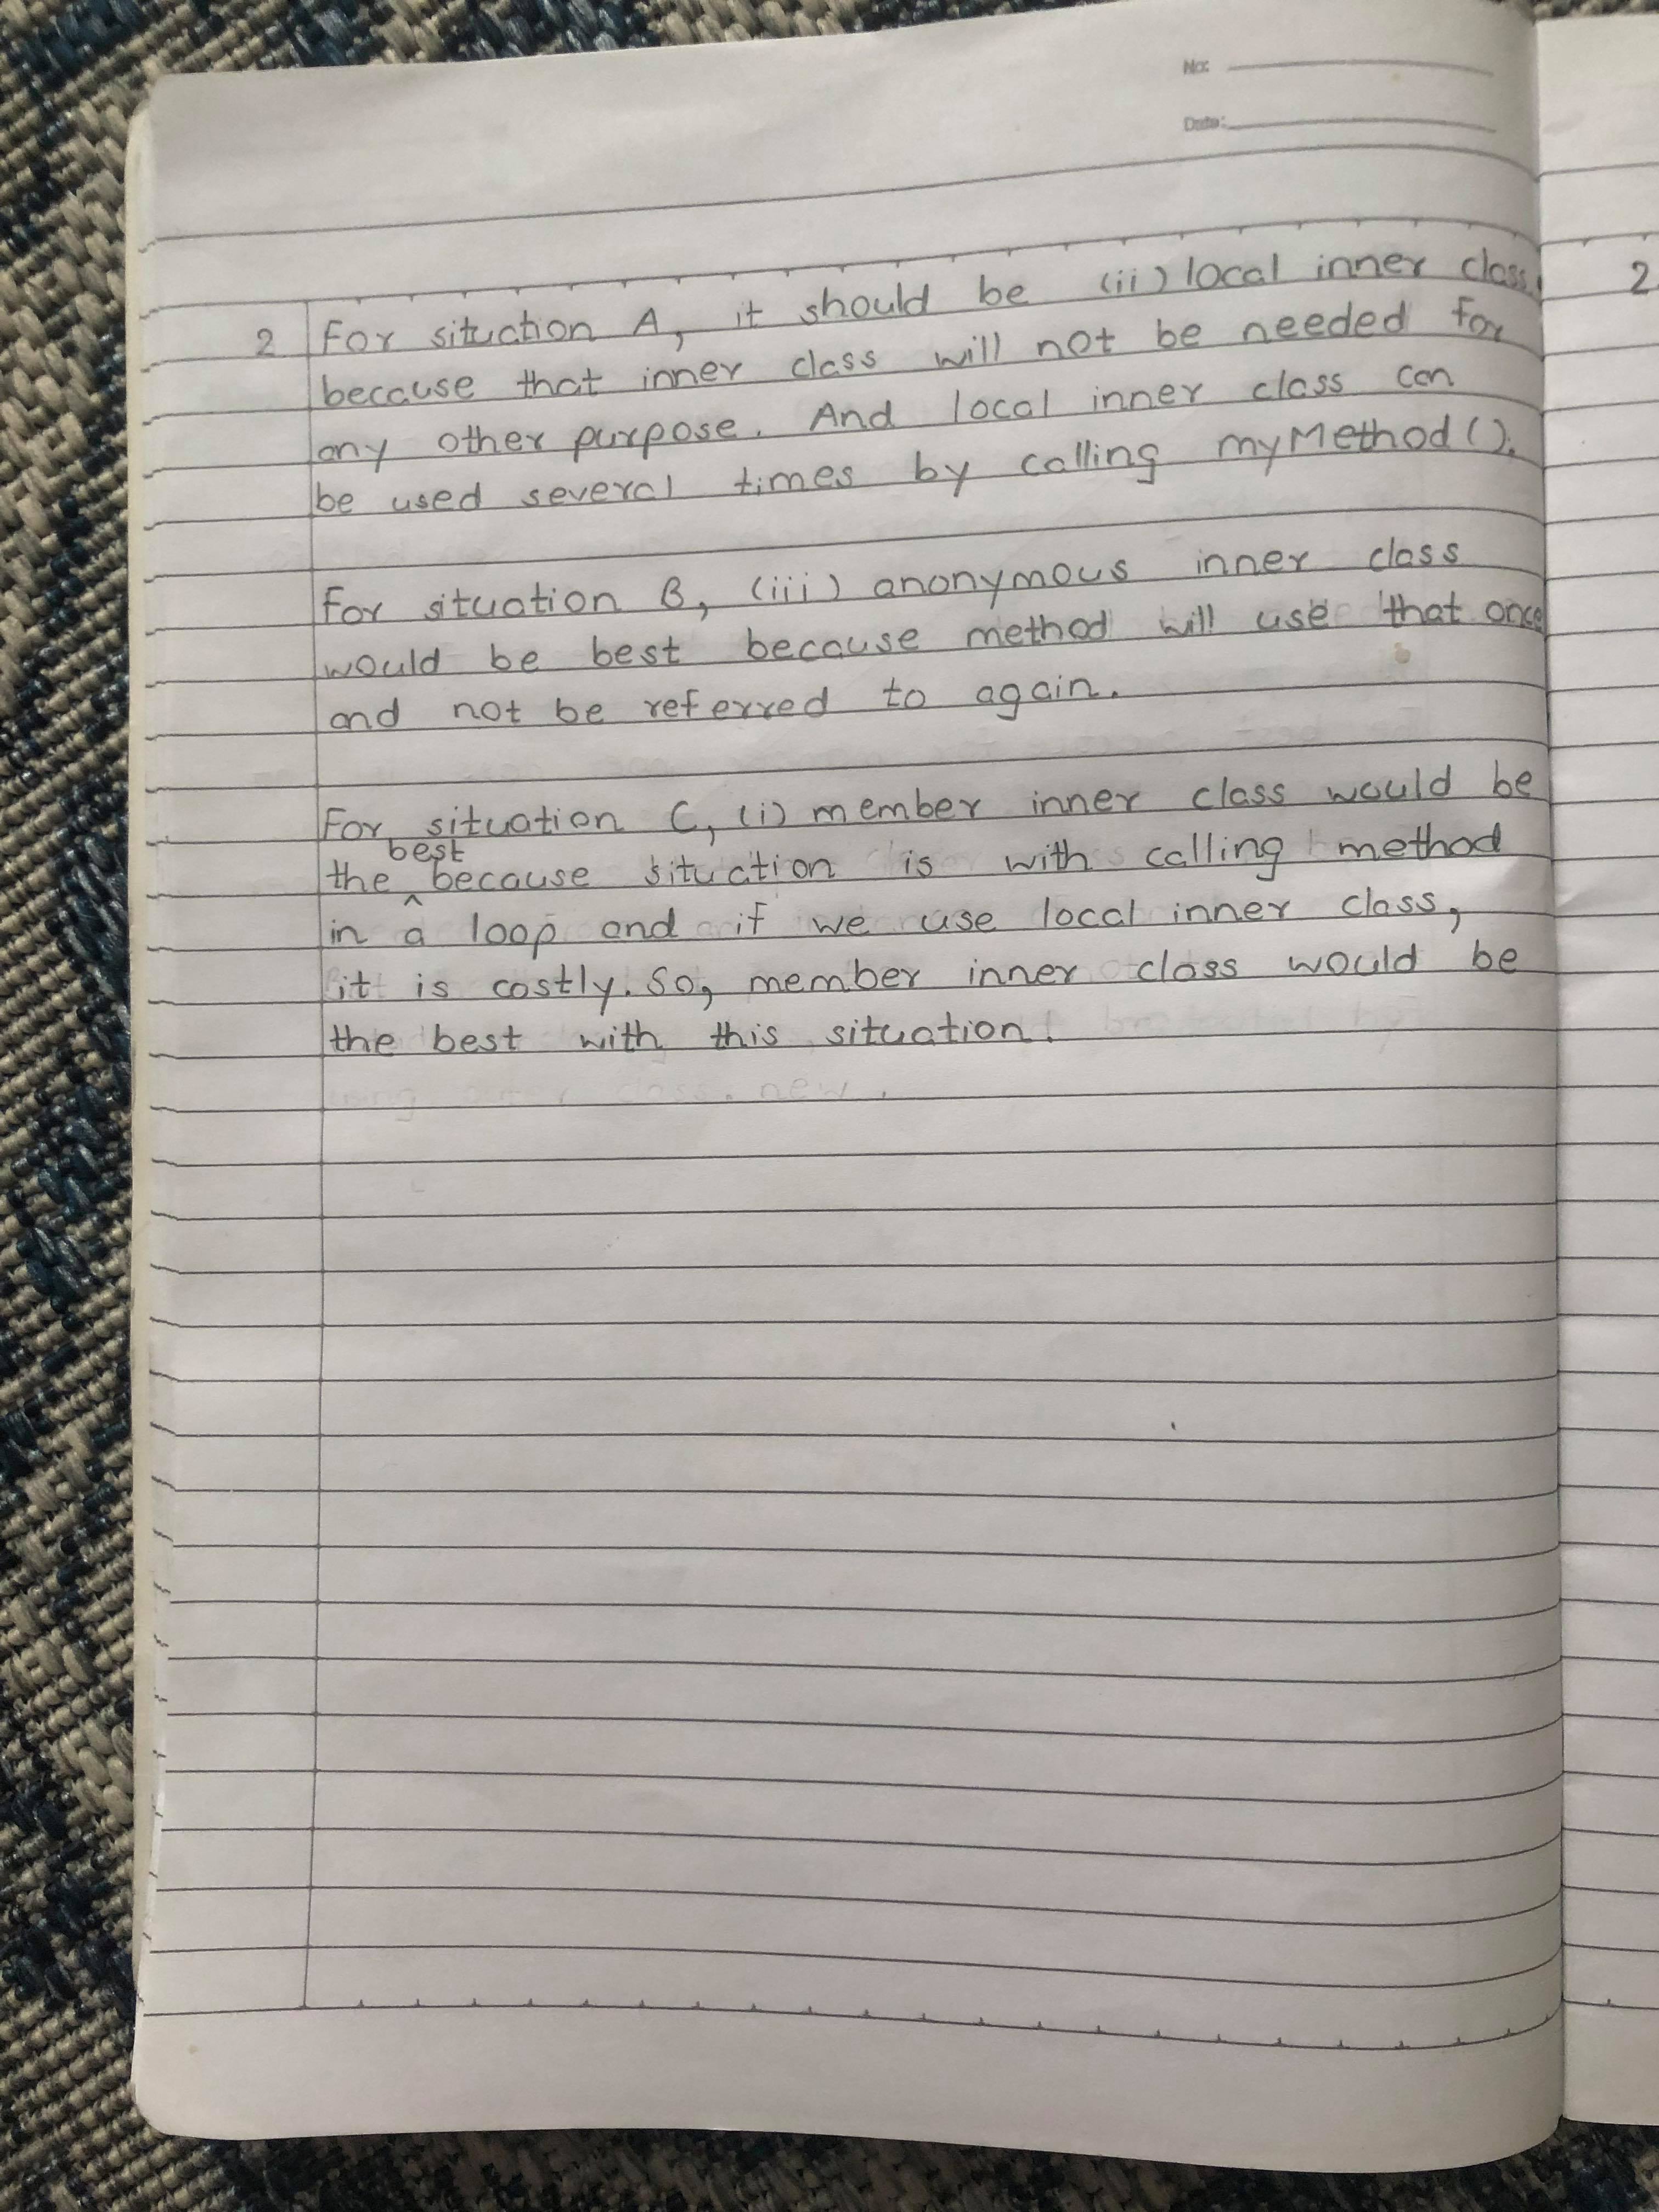 No:
Date:
2 For situation A, it should be (ii) local inner class,
because that inner class will not be needed for
any other purpose. And local inner class can
be used several times by calling myMethod().
For situation B, (iii) anonymous inner class
would be best because method will use that once
and not be referred to again.
For situation C, (i) member inner class would be
the best because situation is with calling method
in a loop and if we use local inner class,
it is costly. So, member inner class would be
the best with this situation.
2